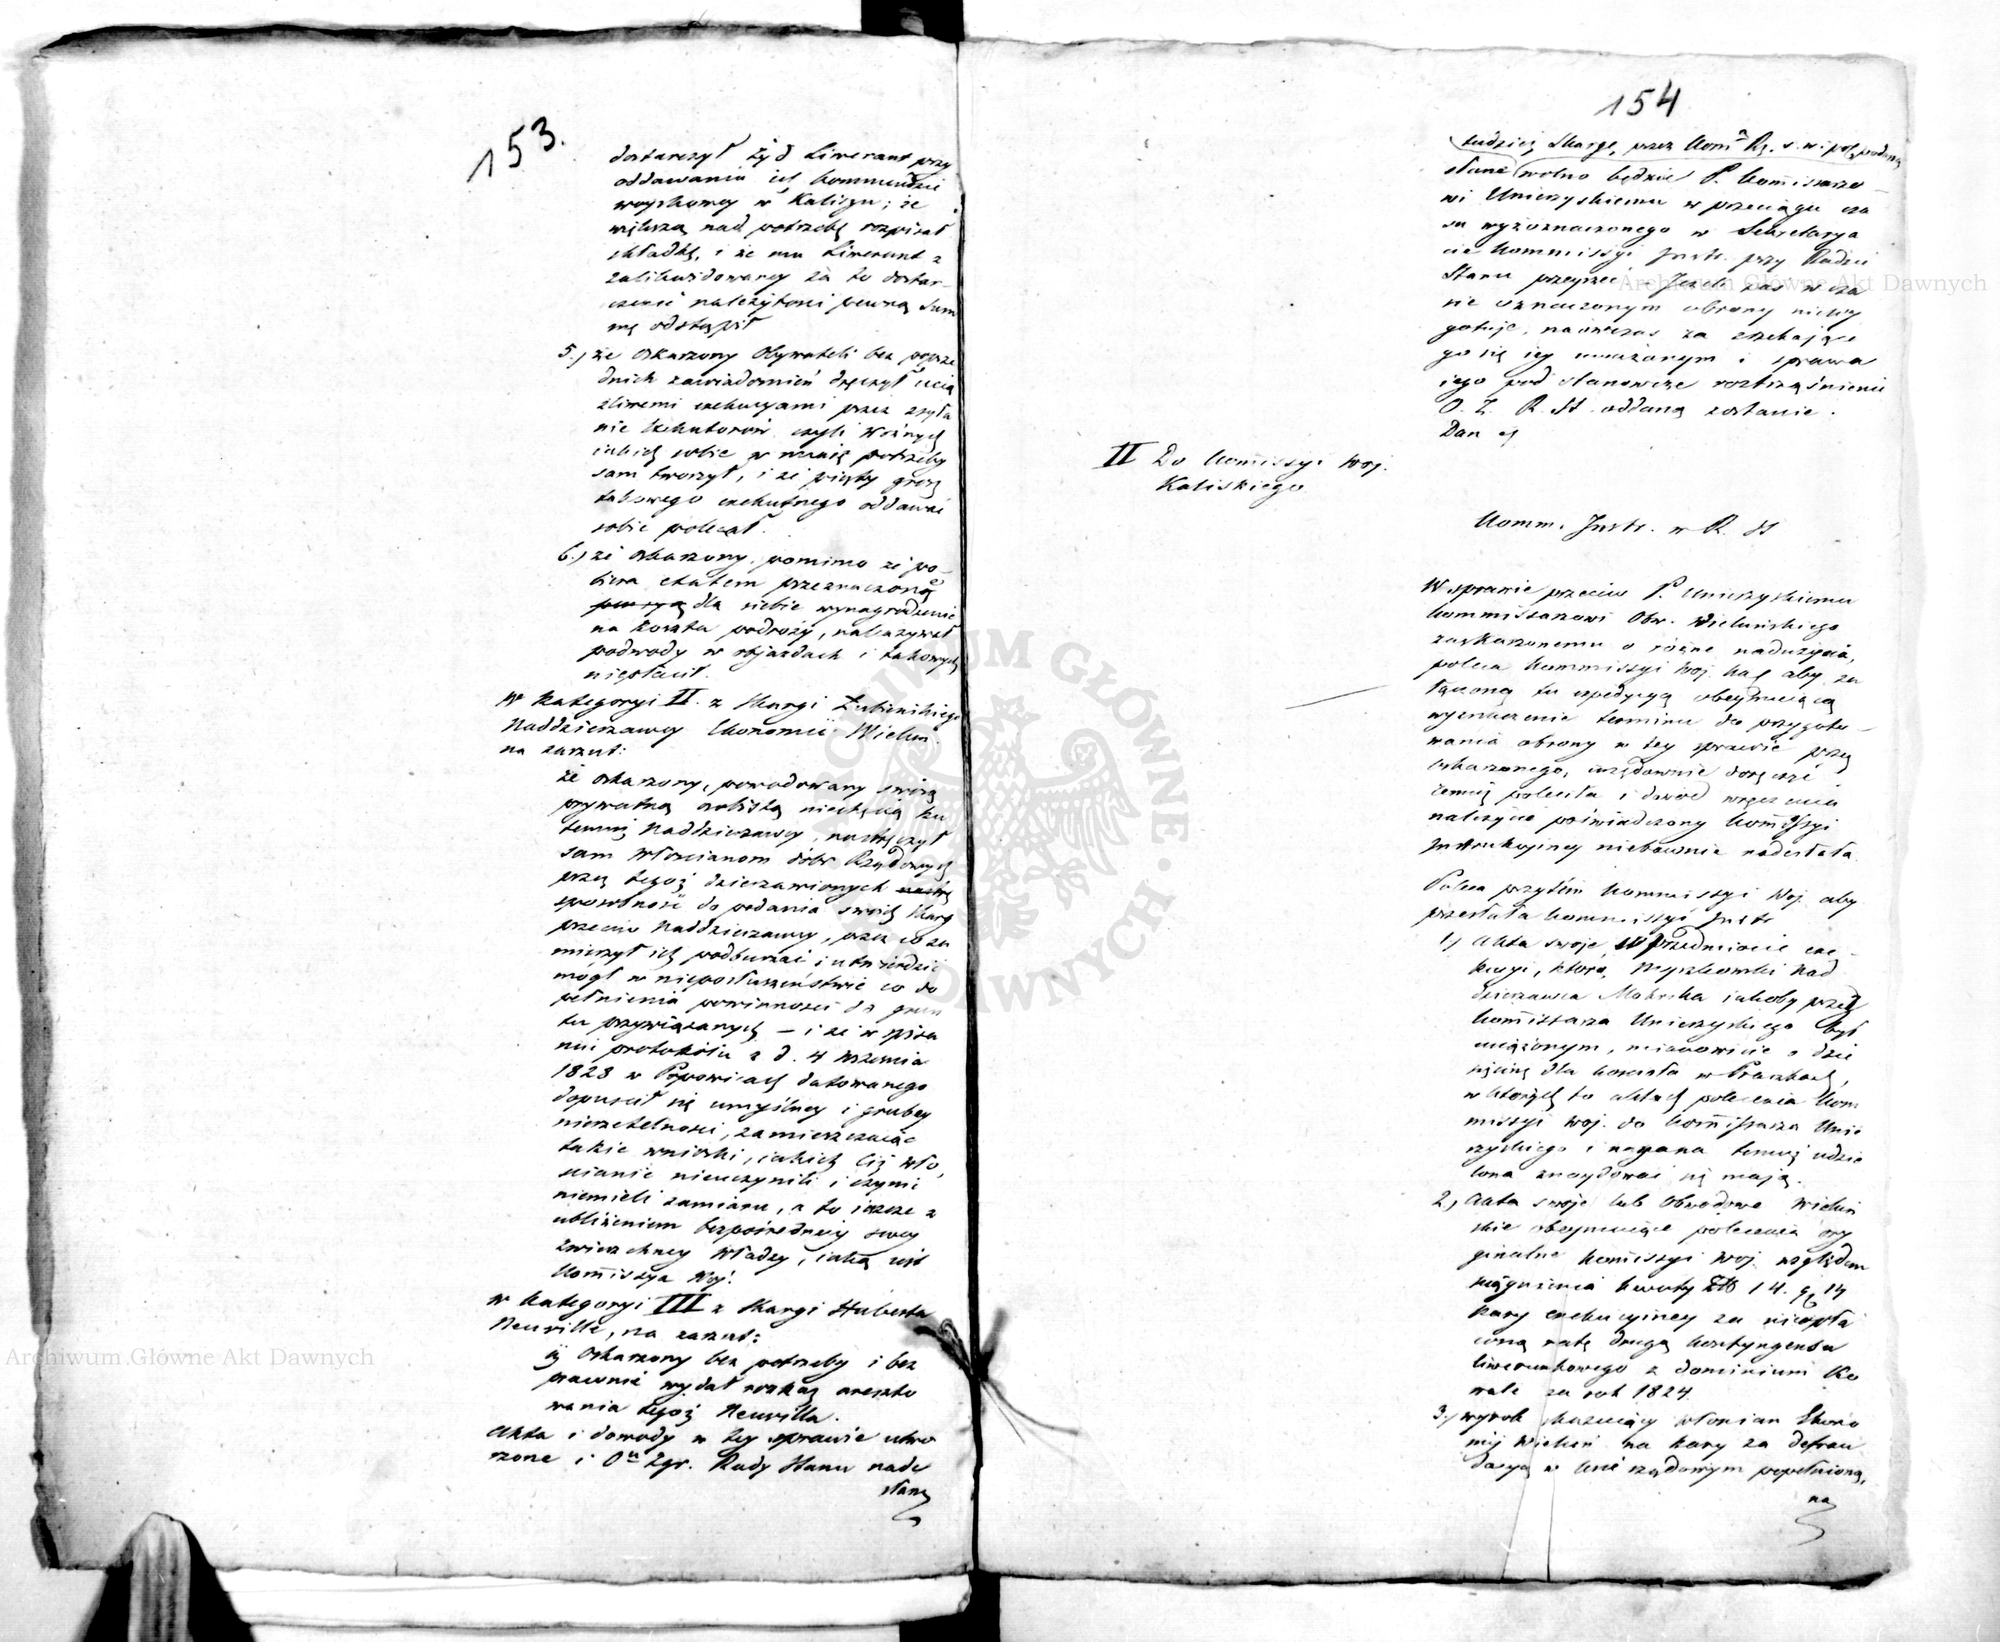 153.
dostarczył Żyd Liwerant przy
oddawaniu ich kommendzie
woyskowey w Kaliszu; że
większą nad potrzebę rozpisał
składkę, i że mu Liwerant z
zalikwidowaney za to dostar-
czenie należytości pewną Sum
mę odstąpił
5.) że oskarzony Obywateli bez poprze
dnich zawiadomień dręczył ucią
zliwemi exekucyami przez zsyła
nie Exekutorów czyli Woźnych
jakich sobie w miarę potrzeby
sam tworzył, i że piąty grosz
takowego exekutnego oddawać
sobie polecał.
6.) że oskarzony, pomimo że po-
biera etatem przeznaczone
dla siebie wynagrodzenie
na koszta podróży, nakazywał
podwody w objazdach i takowych
niepłacił.
W Kategoryi II. z Skargi Zubieńskiego
Naddzierzawcy Ekonomii Wieluń.
na zarzut:
że oskarzony, powodowany swoią
prywatną osobistą niechęcią ku
temuż Naddzierzawcy, nastręczył
sam Włościanom dóbr Rządowych
przez tegoż dzierzawionych
sposobność do podania swoich skarg
przeciw Naddzierzawcy, przez co za
mierzył ich podburzać i utwierdzić
mógł w nieposłuszeństwie co do
pełnienia powinności do grun
tu przywiązanych – i że w spisa
niu protokółu z d. 4 Września
1823 w Popowicach datowanego
dopuścił się umyślney i grubey
nierzetelności, zamieszczaiąc
takie wnioski, jakich ciż Wło,
ścianie nieuczynili i czynić
niemieli zamiaru, a to ieszcze z
ubliżeniem bezpośredniey swey
Zwierzchney Władzy, iaką iest
Kommissya Woj.
w Kategoryi III z Skargi Huberta
Neuville, na zarzut:
iż Oskarzony bez potrzeby i bez
prawnie wydał rozkaz areszto
wania tegoż Neuvilla.
Akta i dowody w tey sprawie utwo
rzone i Ou Zgr. Rady Stanu nade
słane
154
tudzież Skargę, przez Komm Rz. s. w. i pol. podaną
słane wolno będzie P. Kommissarzo-
wi Unierzyskiemu w przeciągu cza
su wyżoznaczonego w Sekretarya
cie Kommissyi Instr. przy Radzie
Stanu przeyrzeć. Jeżeli zaś w cza
sie oznaczonym obrony niewy
gotuje, naówczas za zrzekające
go się iey uważanym i sprawa
iego pod stanowcze roztrząśnienie
O. Z. R. St. oddaną zostanie.
Dan d
II Do Kommissyi Woj.
Kaliskiego
Komm. Instr. w R. St
W sprawie przeciw P. Unierzyskiemu
Kommissarzowi Obw. Wieluńskiego
zaskarzonemu o różne nadużycia,
poleca Kommissyi Woj. Kal. aby za
łączoną tu expedycyą obeymuiącą
wyznaczenie terminu do przygoto-
wania obrony w tey sprawie przez
oskarzonego, urzędownie doręczyć
temuż poleciła i dowód wręczenia
należycie poświadczony Kommissyi
Instrukcyiney niebawnie nadesłała.
Poleca przytém Kommissyi Woj. aby
przesłała Kommissyi Instr
1.) Akta swoje, w przedmiocie exe-
kucyi, którą Myszkowski Nad
dzierzawca Mokrska jakoby przez
Kommissarza Unierzyskiego był
uciążonym, mianowicie o dzie
sięcinę dla kościoła w Praszkach,
w których to aktach polecenia Kom
missyi Woj. do Kommissarza Unie
rzyskiego i nagana temuż udzie
lona znaydować się mają.
2.) Akta swoje lub Obwodowe Wieluń
skie obeymuiące polecenia ory
ginalne Kommissyi Woj. względem
ściągnienia kwoty Złt 14. g. 14
kary exekucyiney za niezapła
coną ratę drugą kontyngensu
liwerunkowego z dominium Ko
wale za rok 1824
3.) wyrok skazuiący włościan Ekono
mij Wieluń na kary za defrau
dacyą w lesie rządowym popełnioną,
na
Archiwum Główne Akt Dawnych
Archiwum Główne Akt Dawnych
ARCHIWUM GŁÓWNE AKT DAWNYCH